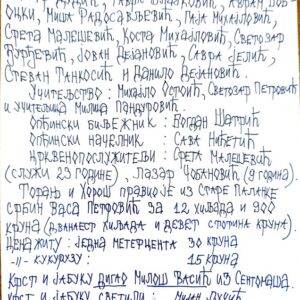 Гавра Влајковић, Аврам Вов-
оцки, Миша Радосављевић, Паја Михајловић,
Срета Малешевић, Коста Михајловић, Светозар
Ђурђевић, Јован Дејановић, Савра Јелић,
Стеван Танкосић и Данило Дејановић.
Учитељство: Михајло Остоић, Светозар Петровић
и учитељица Милица Пандуровић.
Општински бележник: Богдан Шатрић
Општински начелник: Сава Нићетић
Црквенопослужитељи: Срета Малешевић
(служи 23 године), Лазар Чобановић (9 година).
Торањ и хорош правио је из Старе Паланке
Србин Васа Петровић за 12 хиљада и 900
круна (дванаест хиљада и девет стотина круна).
Цена житу: једна метерцента 30 круна
-"- кукурузу: 15 круна
Крст и јабуку дигао Милош Васић из Сентомаша.
Крст и јабуку светили: